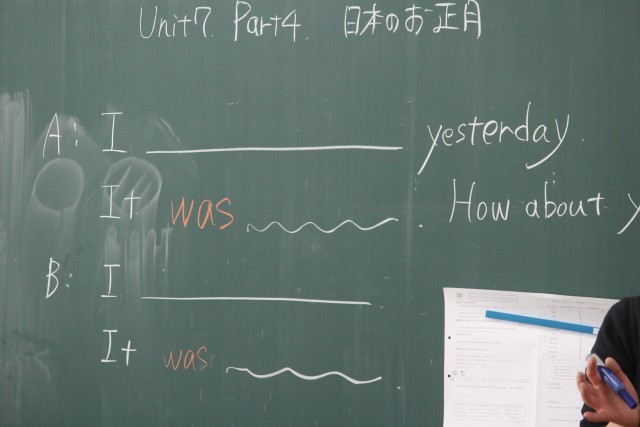 Unit7. Part4. 日本のお正月
A: I ______ yesterday.
It was ~~~~. How about y
B: I ______
It was ~~~~.